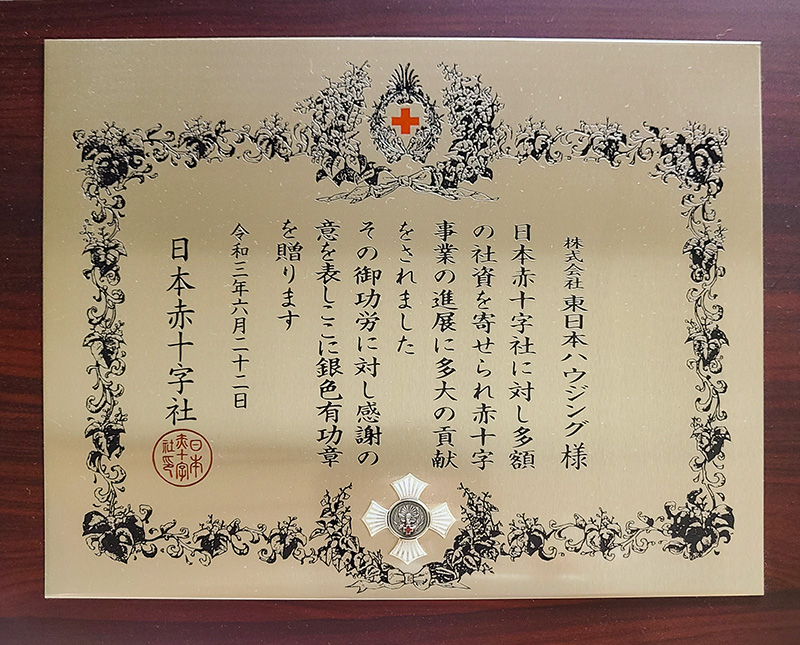 株式会社 東日本ハウジング 様
日本赤十字社に対し多額
の社資を寄せられ赤十字
事業の進展に多大の貢献
をされました
その御功労に対し感謝の
意を表しここに銀色有功章
を贈ります
令和三年六月二十二日
日本赤十字社
日本
赤十字
社印